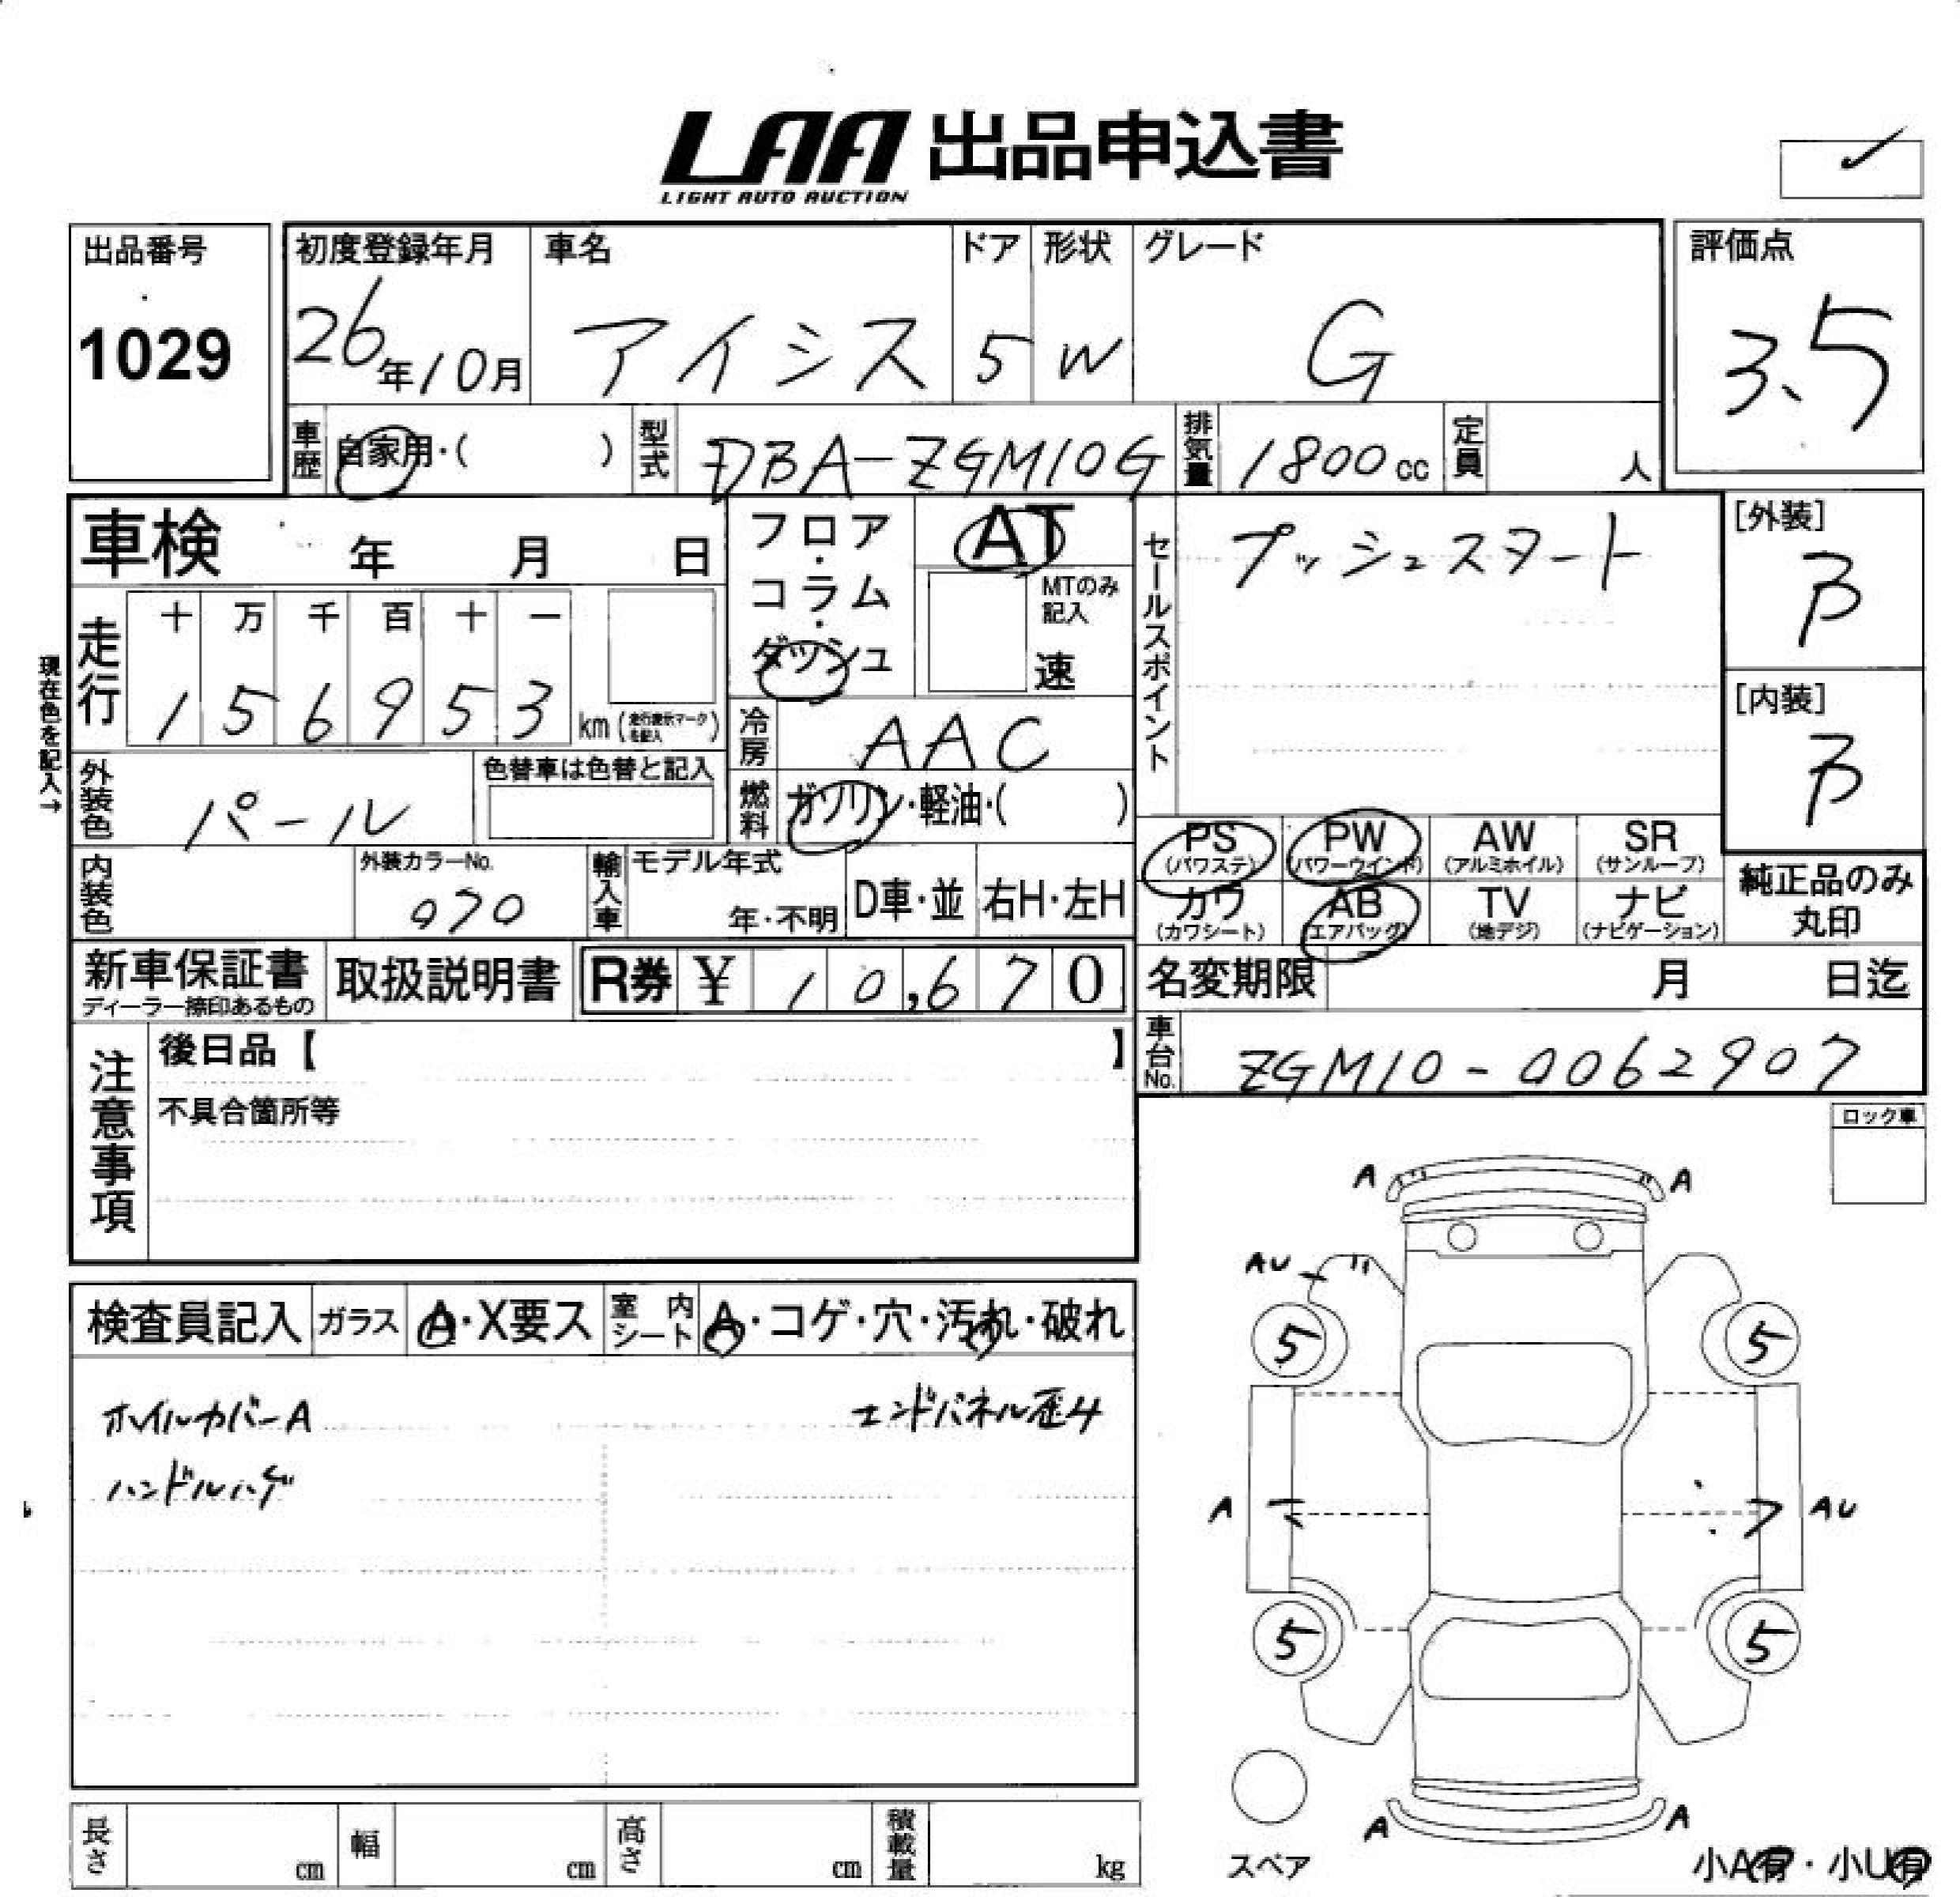 LAA 出品申込書
LIGHT AUTO AUCTION
出品番号
1029
初度登録年月
26年10月
車名
アイシス
ドア
5
形状
W
グレード
G
評価点
3.5
車歴 自家用・( )
型式 DBA-ZGM10G
排気量 1800cc
定員 人
車検 年 月 日
フロア・コラム・ダッシュ
AT
MTのみ記入
速
セールスポイント
プッシュスタート
[外装]
B
[内装]
B
現在色を記入→
走行
十 万 千 百 十 一
1 5 6 9 5 3 km (走行表示マークを記入)
冷房 AAC
外装色 パール
色替車は色替と記入
燃料 ガソリン・軽油・( )
PS (パワステ)
PW (パワーウインド)
AW (アルミホイル)
SR (サンルーフ)
内装色
外装カラーNo.
070
輸入車
モデル年式
年・不明
D車・並
右H・左H
カワ (カワシート)
AB (エアバッグ)
TV (地デジ)
ナビ (ナビゲーション)
純正品のみ丸印
新車保証書
ディーラー捺印あるもの
取扱説明書
R券 ¥ 10,670
名変期限 月 日迄
車台No. ZGM10-0062907
注意事項
後日品【 】
不具合箇所等
ロック車
A A
AU
5 5
A AU
5 5
A A
検査員記入
ガラス A・X要ス
室内シート A・コゲ・穴・汚れ・破れ
ホイルカバーA
エンドパネル歪4
ハンドルハゲ
スペア
小A有・小U有
長さ cm
幅 cm
高さ cm
積載量 kg